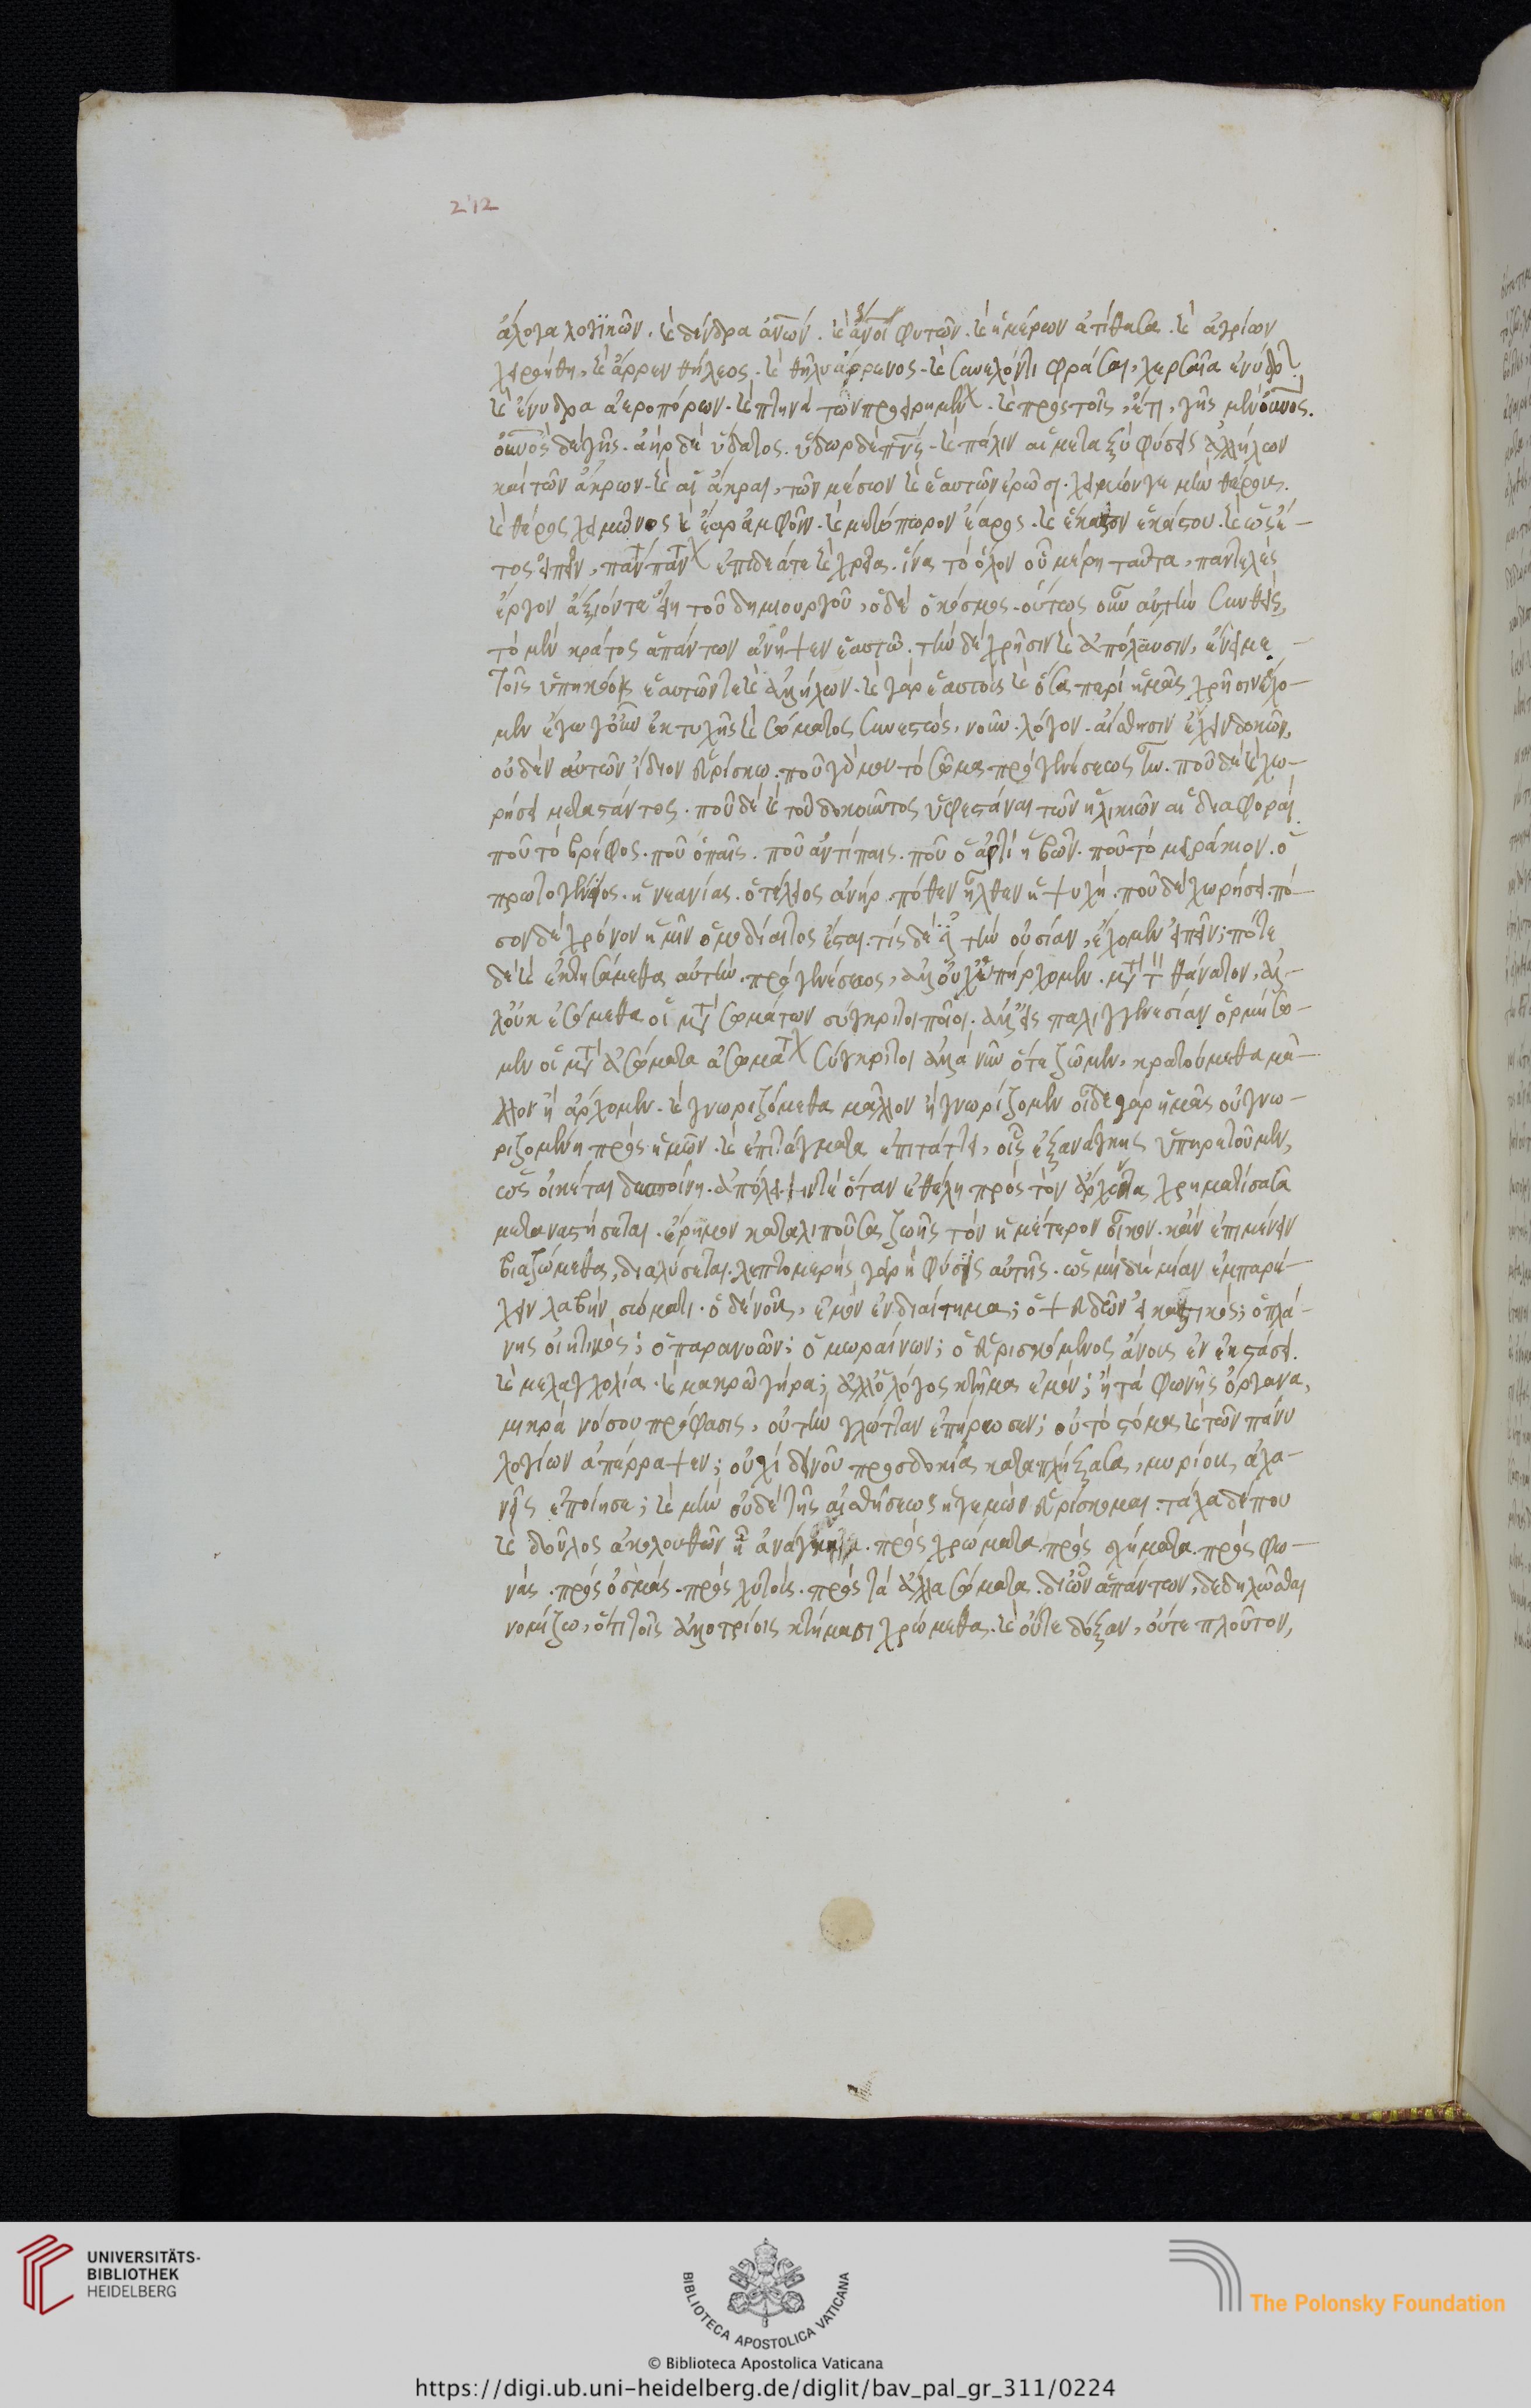 212
ἄλογα λογϊκῶν. καὶ δένδρα ἀνων. καὶ ἄνοι φυτῶν. καὶ ἡμέρων ἀτίθασα. καὶ ἀγρίων
χειροήθη, καὶ ἄρρεν θήλεος. καὶ θῆλυ ἄρρενος. καὶ συνελόντι φράσαι, χερσαῖα ἐνύδρ
καὶ ἔνυδρα ἀεροπόρων. καὶ πτηνὰ τῶν προειρημένων. καὶ πρὸς τοῖς, ἔτι, γῆς μὲν οὐνός.
οὐνὸς δὲ γῆς. ἀὴρ δὲ ὕδατος. ὕδωρ δὲ πνς. καὶ πάλιν αἱ μεταξὺ φύσεις ἀλλήλων
καὶ τῶν ἄκρων. καὶ αἱ ἄκραι, τῶν μέσων καὶ ἑαυτῶν ἐρῶσι. χειμών γε μὴν θέρους.
καὶ θέρος χειμῶνος καὶ ἔαρ ἀμφοῖν. καὶ μετόπωρον ἔαρος. καὶ ἕκαστον ἑκάστου. καὶ ὡς ἔ-
τος εἰπεῖν, πάντα πάντων ἐπιδεᾶτε καὶ χρεῖα. ἵνα τὸ ὅλον οὗ μέρη ταῦτα, παντελὲς
ἔργον ἄξιόντε εἴη τοῦ δημιουργοῦ, ὅδε ὁ κόσμος. οὕτως οὖν αὐτὴν συνθεὶς,
τὸ μὲν κράτος ἁπάντων ἀνῆψεν ἑαυτῶ. τὴν δὲ χρῆσιν καὶ ἀπόλαυσιν, ἔνειμε
τοῖς ὑπηκόοις ἑαυτῶν τε καὶ ἀλλήλων. καὶ γὰρ ἑαυτοὺς καὶ ὅσα περὶ ἡμᾶς χρῆσιν ἔχο-
μεν ἐγὼ γοῦν ἐκ ψυχῆς καὶ σώματος συνεστὼς, νοῦν. λόγον. αἴσθησιν ἔχειν δοκῶν,
οὐδὲν αὐτῶν ἴδιον εὑρίσκω. ποῦ γάρ μου τὸ σῶμα πρὸ γενέσεως ἦν. ποῦ δὲ καὶ χω-
ρήσει μεταστάντος. ποῦ δὲ καὶ τοῦ δοκοῦντος ὑφεστάναι τῶν ἡλικιῶν αἱ διαφοραί.
ποῦ τὸ βρέφος. ποῦ ὁ παῖς. ποῦ ἀντίπαις. ποῦ ὁ ἄρτι ἡβῶν. ποῦ τὸ μειράκιον. ὁ
πρωτογένειος. ἡ νεανίας. ὁ τέλειος ἀνήρ. πόθεν ἦλθεν ἡ ψυχή. ποῦ δὲ χωρήσει. πό-
σον δὲ χρόνον ἡμῖν ὁμοδίαιτος ἔσται. τίς δὲ ᾖ τὴν οὐσίαν, ἔχομεν εἰπεῖν; πότε
δὲ καὶ ἐκτησάμεθα αὐτήν. πρὸ γενέσεως, ἀλλ' οὐχ ὑπήρχομεν. μετὰ τὸν θάνατον, ἀλ-
λ' οὐκ ἐσόμεθα οἱ μετὰ σωμάτων σύγκριτοι ποιοί. ἀλλ' εἰς παλιγγενεσίαν ὁρμήσο-
μεν οἱ μετὰ ἀσώματα ἀσωμάτων σύγκριτοι ἀλλὰ νῦν ὅτε ζῶμεν, κρατούμεθα μᾶ-
λλον ἢ ἄρχομεν. καὶ γνωριζόμεθα μᾶλλον ἢ γνωρίζομεν οἶδε γὰρ ἡμᾶς οὐ γνω-
ριζομένη πρὸς ἡμῶν. καὶ ἐπιτάγματα ἐπιτάττει, οἷς ἐξ ἀνάγκης ὑπηρετοῦμεν,
ὡς οἰκέται δεσποίνη. ἀπόλειψίντε ὅταν ἐθέλη πρὸς τὸν ἄρχοντα χρηματίσασα
μεταναστήσεται. ἔρημον καταλιποῦσα ζωῆς τὸν ἡμέτερον οἶκον. κἂν ἐπιμένειν
βιαζώμεθα, διαλύσεται. λεπτομερὴς γὰρ ἡ φύσις αὐτῆς. ὡς μηδεμίαν ἐμπαρέ-
χειν λαβὴν σώματι. ὁ δὲ νοῦς, ἐμὸν ἐνδιαίτημα; ὁ ψευδῶν εἰκαστικός; ὁ πλά-
νης οἰητικός; ὁ παρανοῶν; ὁ μωραίνων; ὁ εὑρισκόμενος ἄνους ἐν ἐκστάσει.
καὶ μελαγχολία. καὶ μακρῶ γήρα; ἀλλ' ὁ λόγος κτῆμα ἐμόν; ἢ τὰ φωνῆς ὄργανα,
μικρὰ νόσου πρόφασις, οὐ τὴν γλῶτταν ἐπήρωσεν; οὐ τὸ στόμα καὶ τῶν πάνυ
λογίων ἀπέρραψεν; οὐχὶ δεινοῦ προσδοκία καταπλήξασα, μυρίους ἀχα-
νεῖς ἐποίησε; καὶ μὴν οὐδὲ τῆς αἰσθήσεως ἡγεμὼν εὑρίσκομαι. τάχα δέ που
καὶ δοῦλος ἀκολουθῶν ᾗ ἀνάγκη. πρὸς χρώματα. πρὸς σχήματα. πρὸς φω-
νάς. πρὸς ὀσμάς. πρὸς χυτούς. πρὸς τὰ ἄλλα σώματα. δι' ὧν ἁπάντων, δεδηλῶσθαι
νομίζω, ὅτι τοῖς ἀλλοτρίοις κτήμασι χρώμεθα. καὶ οὔτε δόξαν, οὔτε πλοῦτον,
UNIVERSITÄTS-
BIBLIOTHEK
HEIDELBERG
BIBLIOTECA APOSTOLICA VATICANA
The Polonsky Foundation
© Biblioteca Apostolica Vaticana
https://digi.ub.uni-heidelberg.de/diglit/bav_pal_gr_311/0224